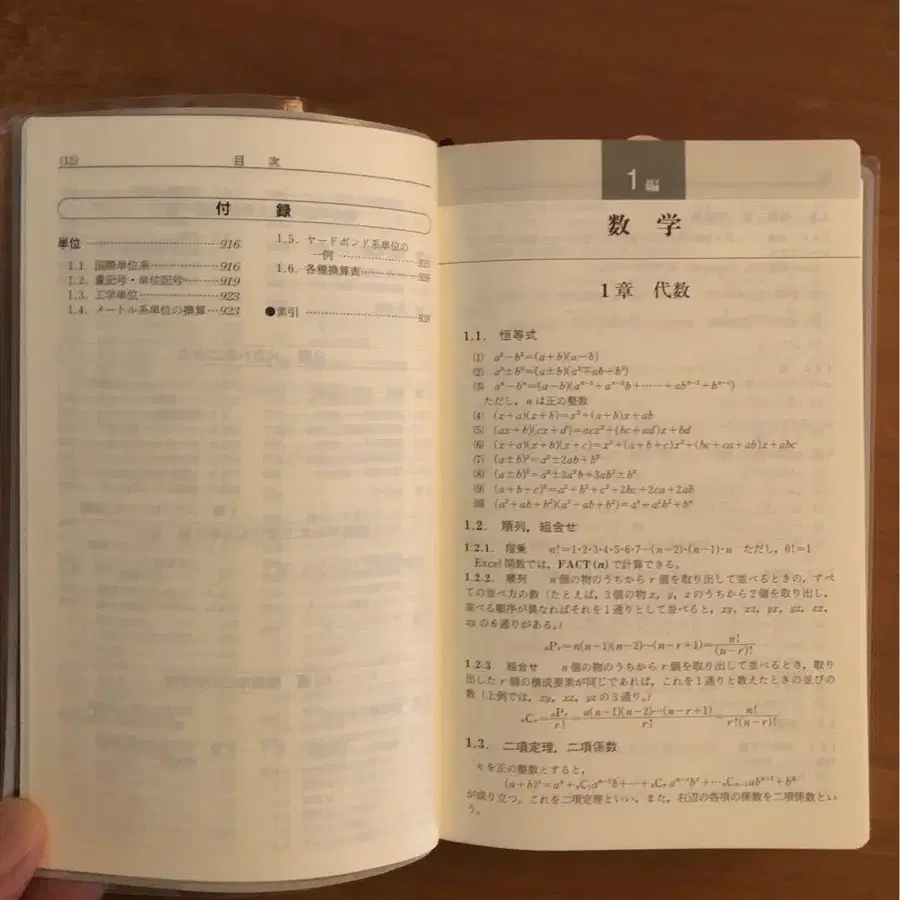 (12) 目 次
付 録
単位 ……916
1.1. 国際単位系……916
1.2. 量記号・単位記号……919
1.3. 工学単位……923
1.4. メートル系単位の換算…923
1.5. ヤードポンド系単位の
一例 ……925
1.6. 各種換算表……
●索引 ……
1 編
数 学
1章 代数
1.1. 恒等式
(1) a²−b²=(a+b)(a−b)
(2) a³±b³=(a±b)(a²∓ab+b²)
(3) aⁿ−bⁿ=(a−b)(aⁿ⁻¹+aⁿ⁻²b+……+abⁿ⁻²+bⁿ⁻¹)
ただし,nは正の整数
(4) (x+a)(x+b)=x²+(a+b)x+ab
(5) (ax+b)(cx+d)=acx²+(bc+ad)x+bd
(6) (x+a)(x+b)(x+c)=x³+(a+b+c)x²+(bc+ca+ab)x+abc
(7) (a±b)²=a²±2ab+b²
(8) (a±b)³=a³±3a²b+3ab²±b³
(9) (a+b+c)²=a²+b²+c²+2bc+2ca+2ab
(10) (a²+ab+b²)(a²−ab+b²)=a⁴+a²b²+b⁴
1.2. 順列,組合せ
1.2.1. 階乗 n!=1・2・3・4・5・6・7…(n−2)・(n−1)・n ただし,0!=1
Excel関数では,FACT(n)で計算できる。
1.2.2. 順列 n個の物のうちからr個を取り出して並べるときの,すべ
ての並べ方の数(たとえば,3個の物x,y,zのうちから2個を取り出し,
並べる順序が異なればそれを1通りとして並べると,xy,xz,yx,yz,zx,
zyの6通りがある。)
ₙPᵣ=n(n−1)(n−2)…(n−r+1)=n!/(n−r)!
1.2.3. 組合せ n個の物のうちからr個を取り出して並べるとき,取り
出したr個の構成要素が同じであれば,これを1通りと数えたときの並びの
数(上例では,xy,xz,yzの3通り。)
ₙCᵣ=ₙPᵣ/r!=n(n−1)(n−2)…(n−r+1)/r!=n!/r!(n−r)!
1.3. 二項定理,二項係数
nを正の整数とすると,
(a+b)ⁿ=aⁿ+ₙC₁aⁿ⁻¹b+…+ₙCᵣaⁿ⁻ʳbʳ+…ₙCₙ₋₁abⁿ⁻¹+bⁿ
が成り立つ。これを二項定理といい,また,右辺の各項の係数を二項係数とい
う。